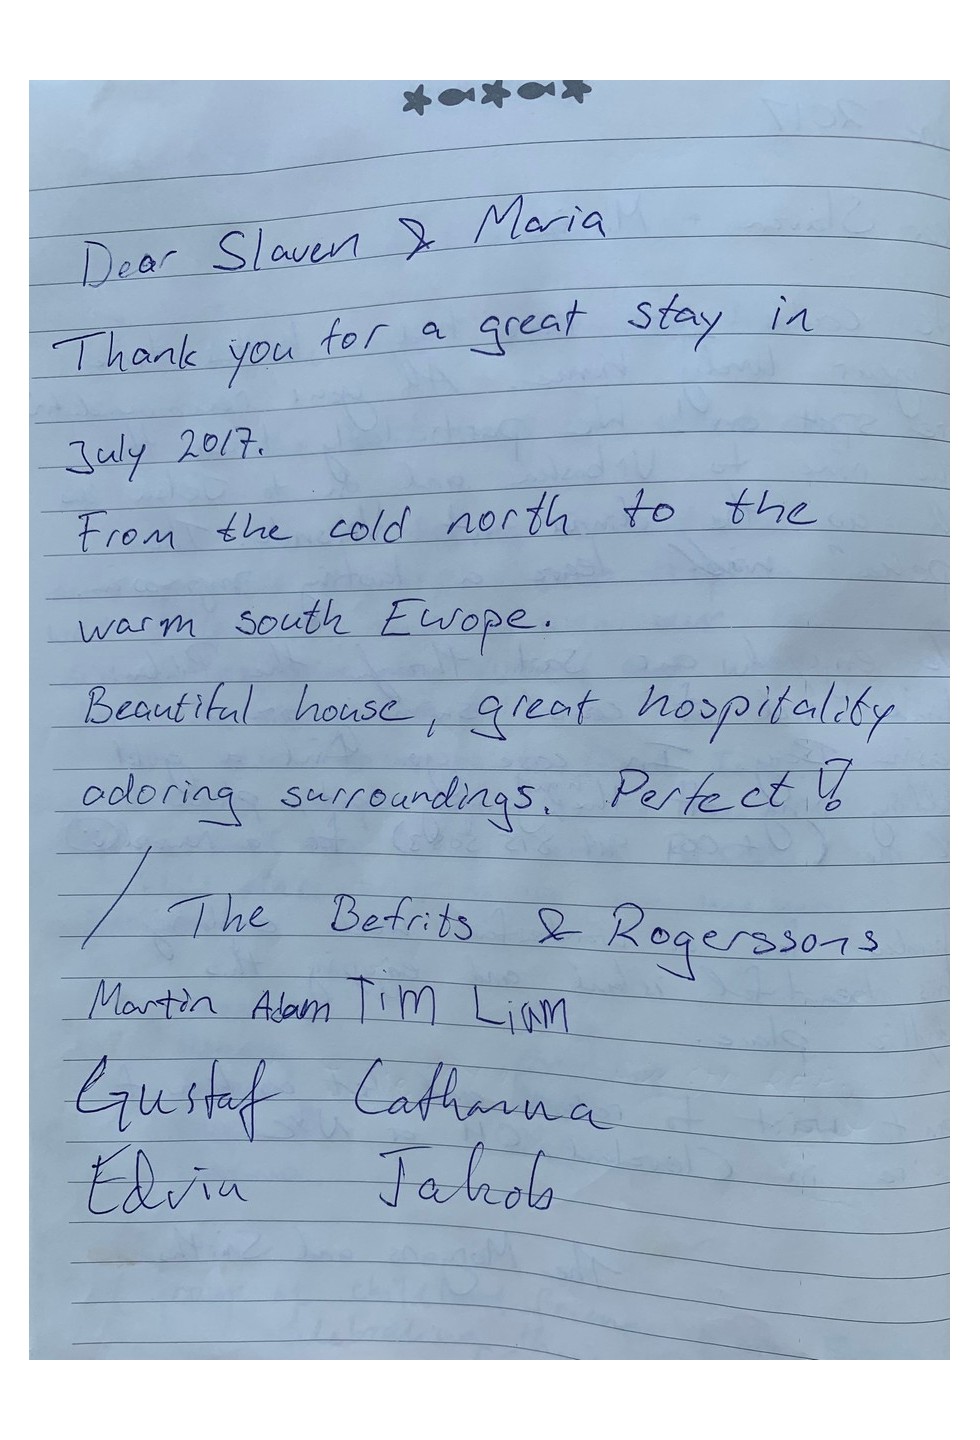 Dear Slaven & Maria
Thank you for a great stay in
July 2017.
From the cold north to the
warm south Europe.
Beautiful house, great hospitality
adoring surroundings. Perfect!!
/ The Befrits & Rogerssons
Martin Adam Tim Liam
Gustaf Catharina
Edvin Jakob